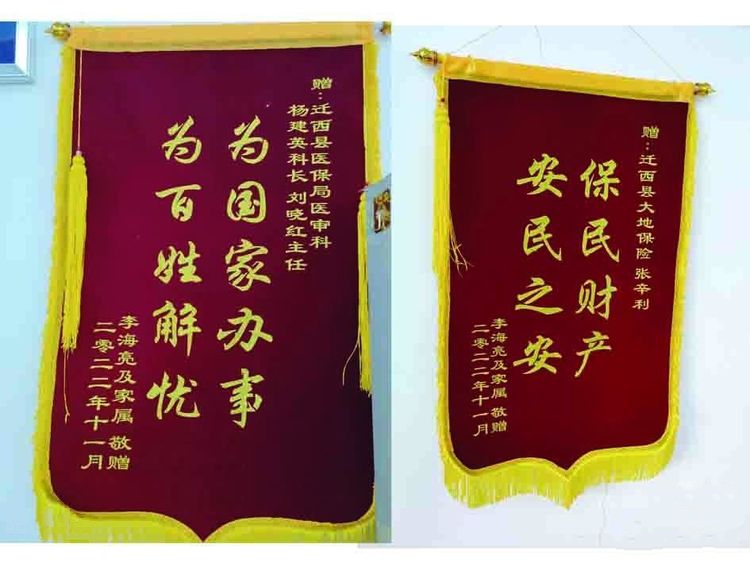 赠：迁西县医保局医审科
杨建英科长 刘晓红主任
为国家办事
为百姓解忧
李海亮及家属 敬赠
二零二二年十一月
赠：迁西县大地保险 张辛利
保民财产
安民之安
李海亮及家属 敬赠
二零二二年十一月